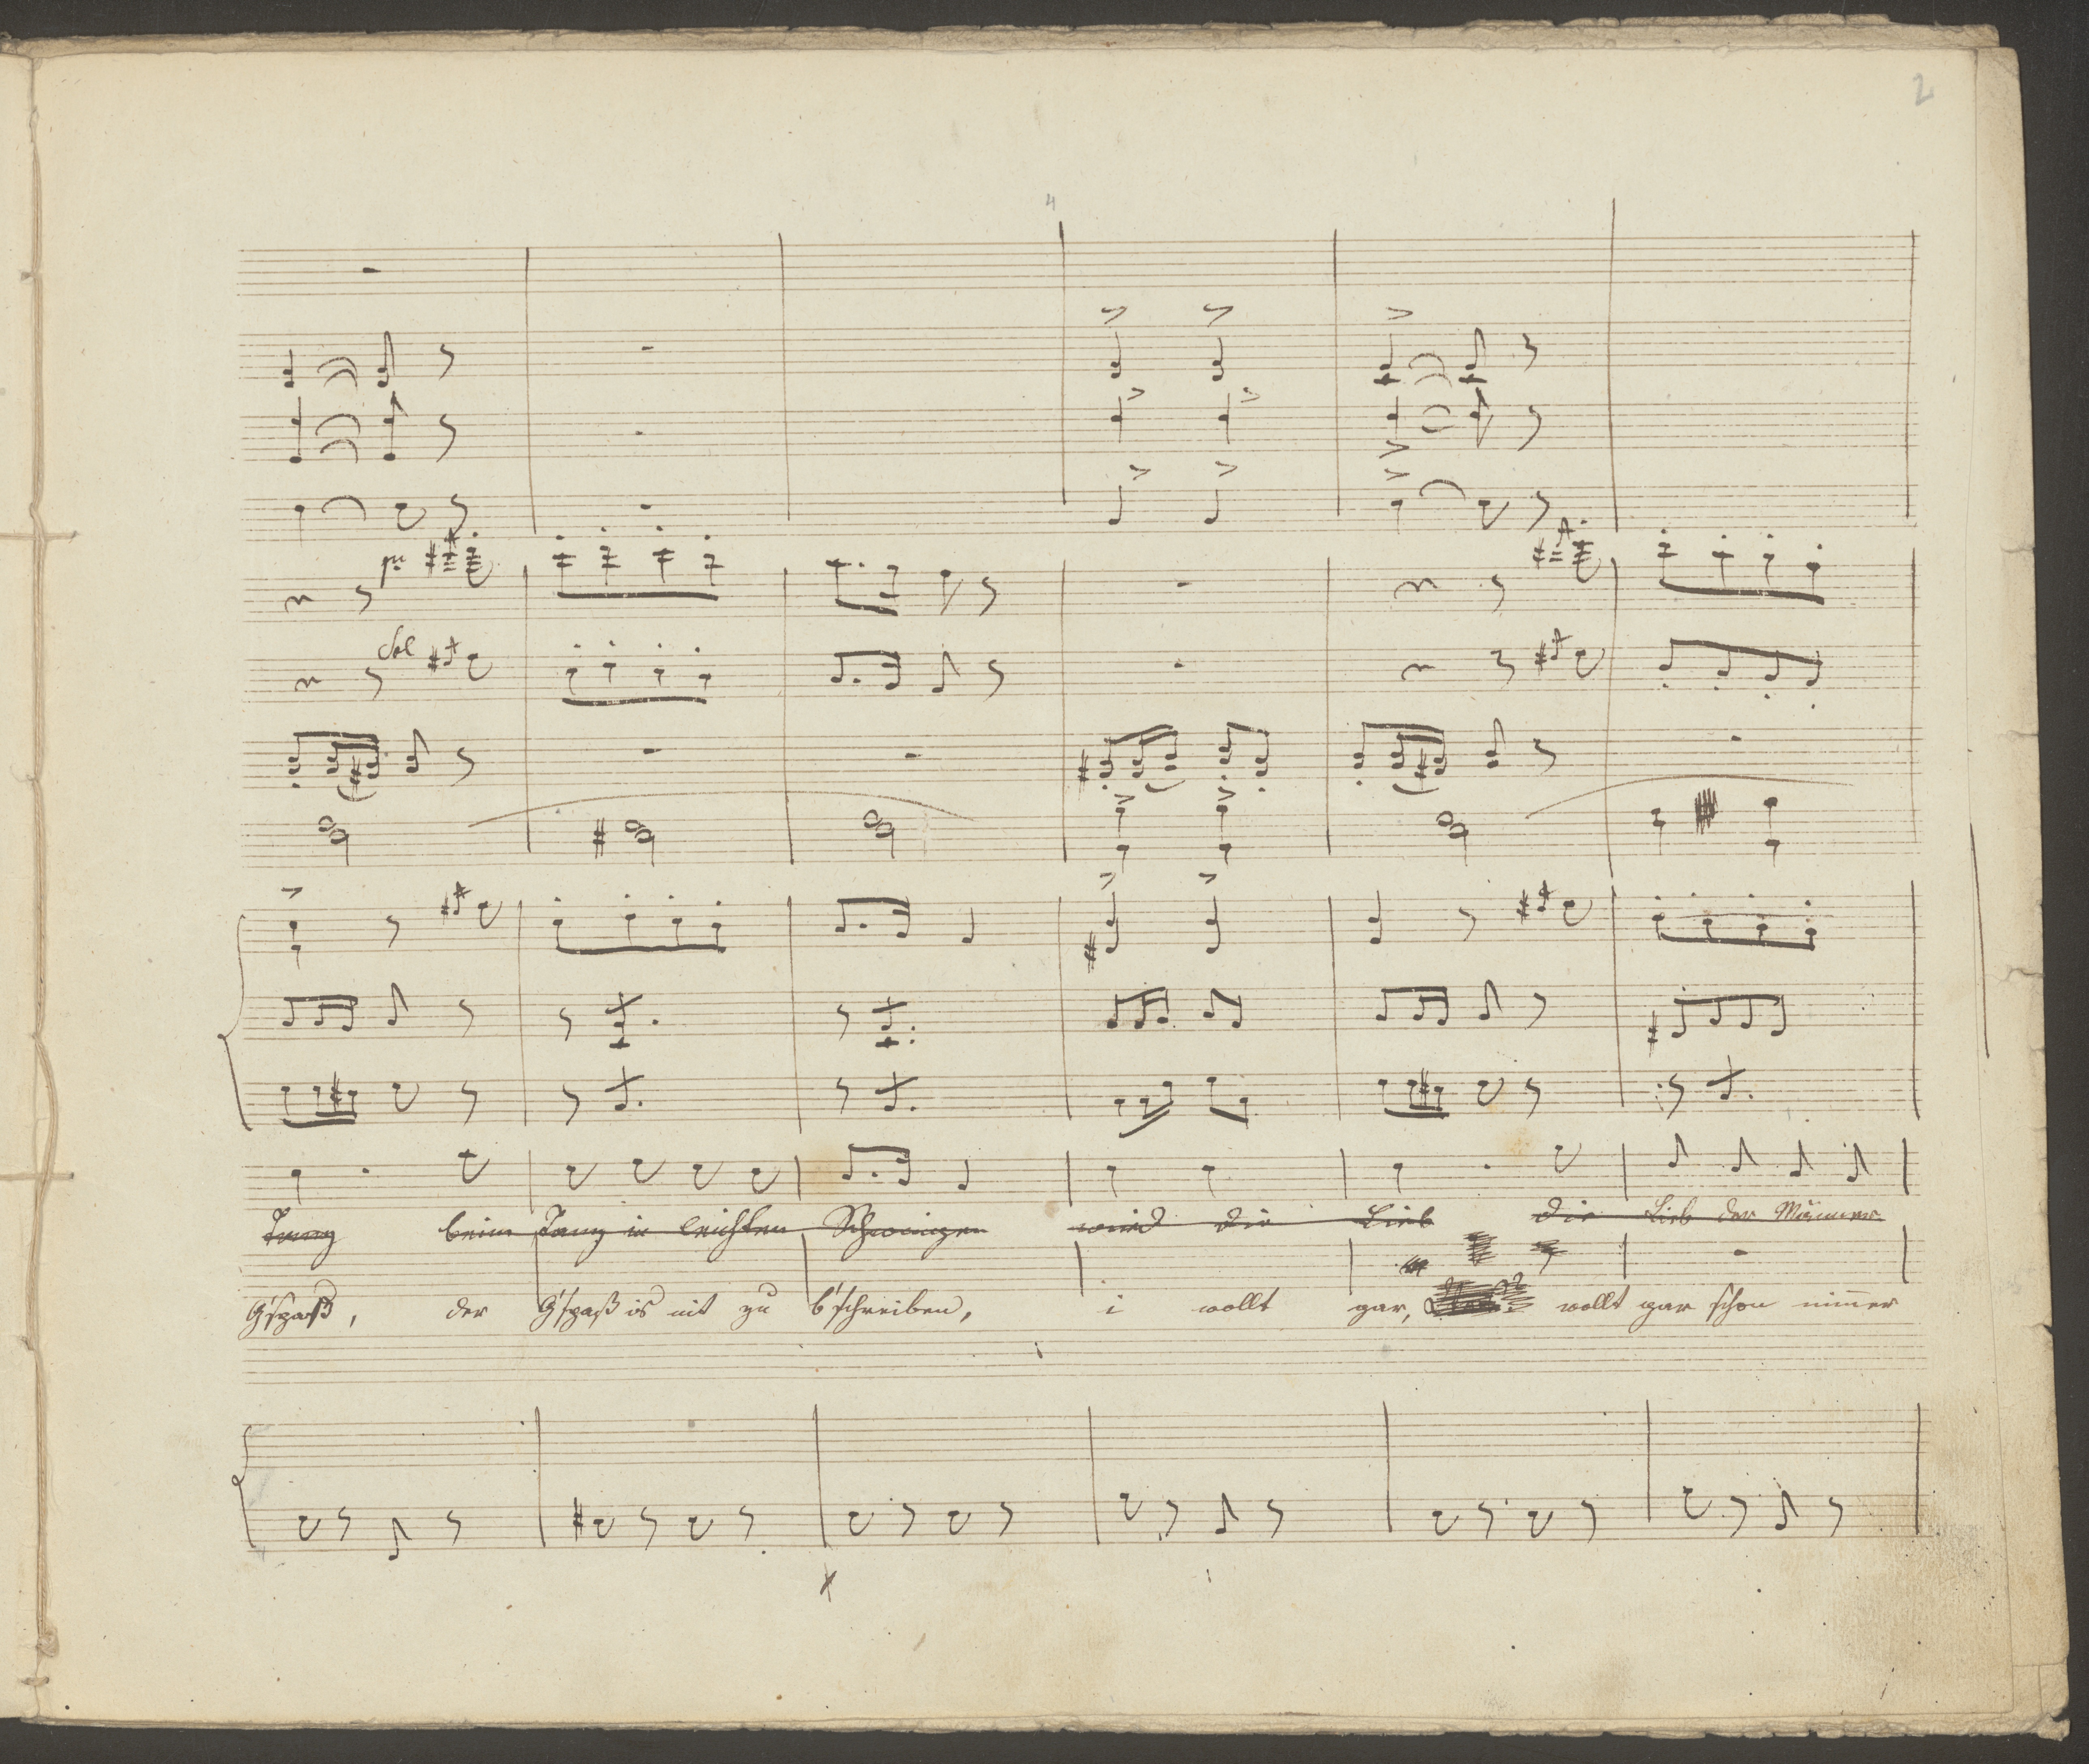 2
4
Sol
Tanz beim Tanz in leichten Schwingen wird die Lieb die Lieb der Männer
G'spaß, der G'spaß is nit zu b'schreiben, i wollt gar, wollt gar schon nim̅er